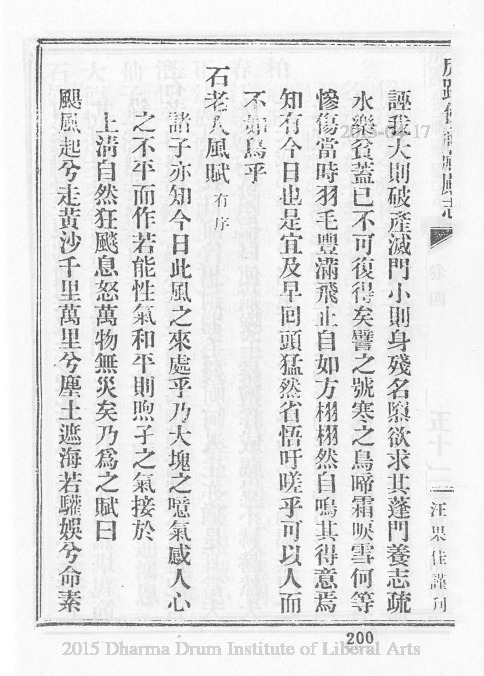 誣我大則破產滅門小則身殘名隳欲求其蓬門養志疏
水樂貧蓋已不可復得矣譬之號寒之鳥啼霜唳雪何等
慘傷當時羽毛豐滿飛止自如方栩栩然自鳴其得意焉
知有今日也是宜及早回頭猛然省悟吁嗟乎可以人而
不如鳥乎
石老人風賦 有序
諸子亦知今日此風之來處乎乃大塊之噫氣感人心
之不平而作若能性氣和平則煦孑之氣接於
上清自然狂飈息怒萬物無災矣乃為之賦曰
颶風起兮走黃沙千里萬里兮塵土遮海若驩娛兮命素
卷四
五十一
汪果佳謹刊
200
2015-04-17
2015 Dharma Drum Institute of Liberal Arts